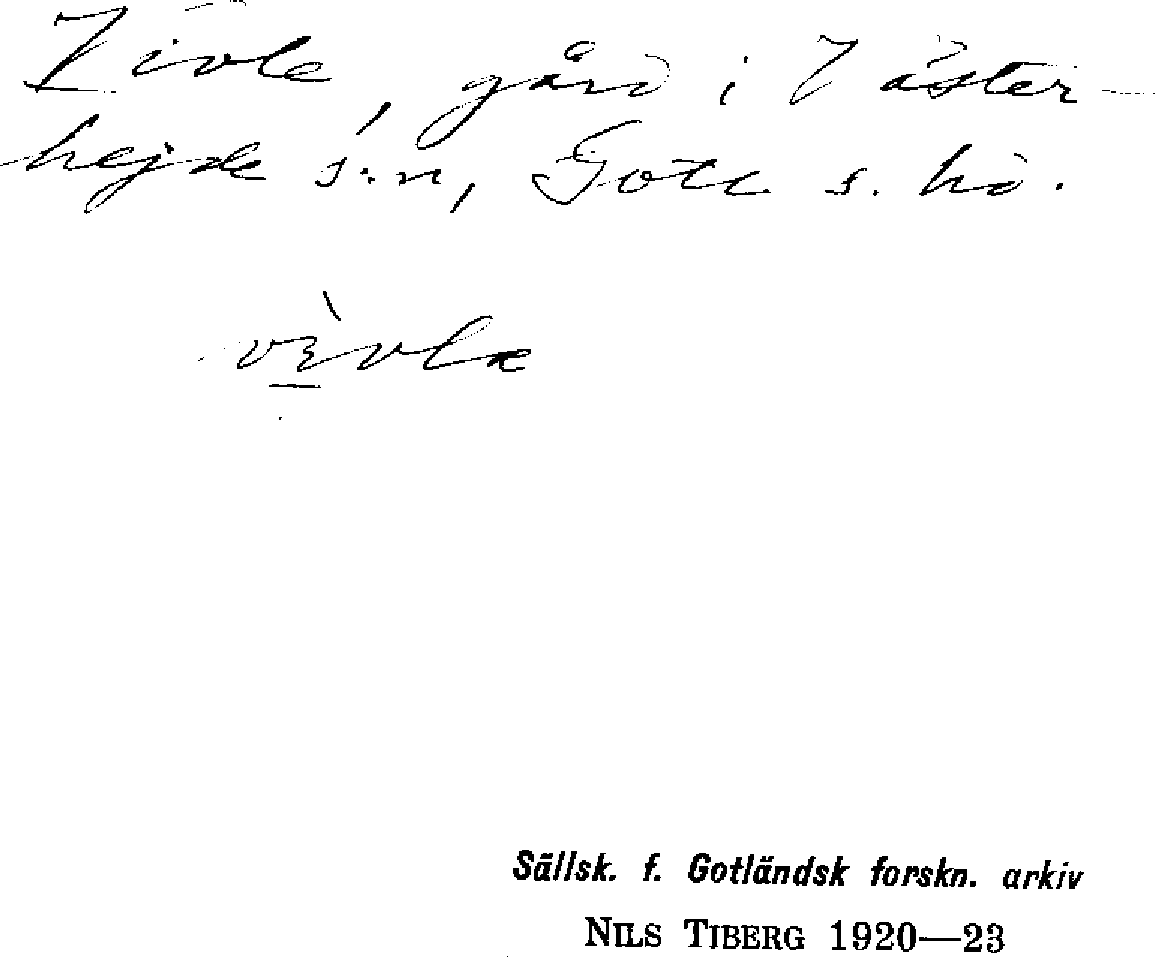 Vivle, gård i Väster-
hejde s:n, Gotl. s. hd.
Sällsk. f. Gotländsk forskn. arkiv
NILS TIBERG 1920—23